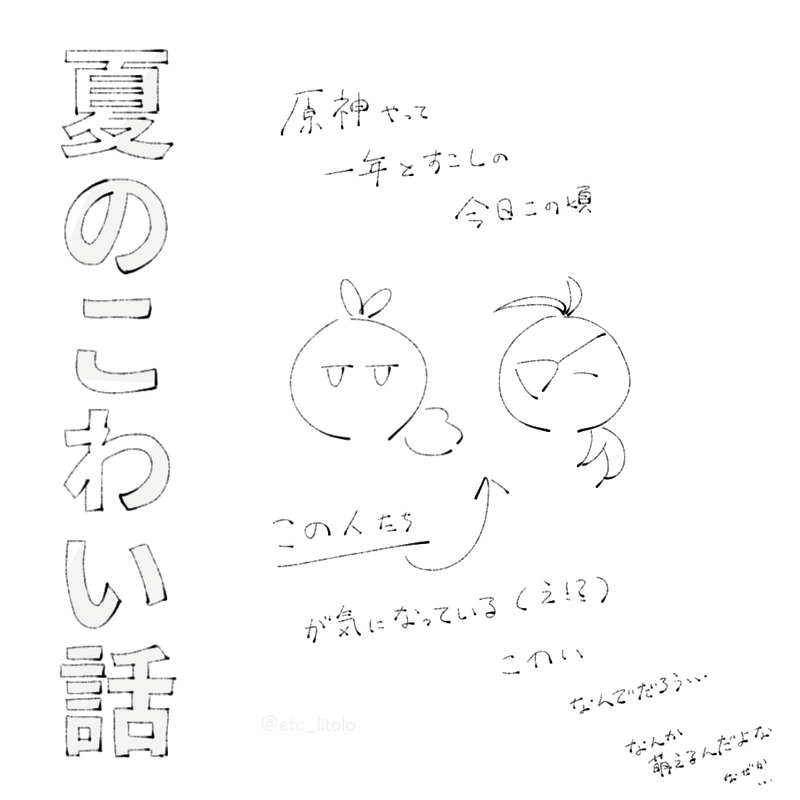 夏のこわい話
原神やって
一年とすこしの
今日この頃
この人たち
が気になっている(え!?)
こわい
なんでだろう…
なんか
萌えるんだよな
なぜか
…
@etc_litolo